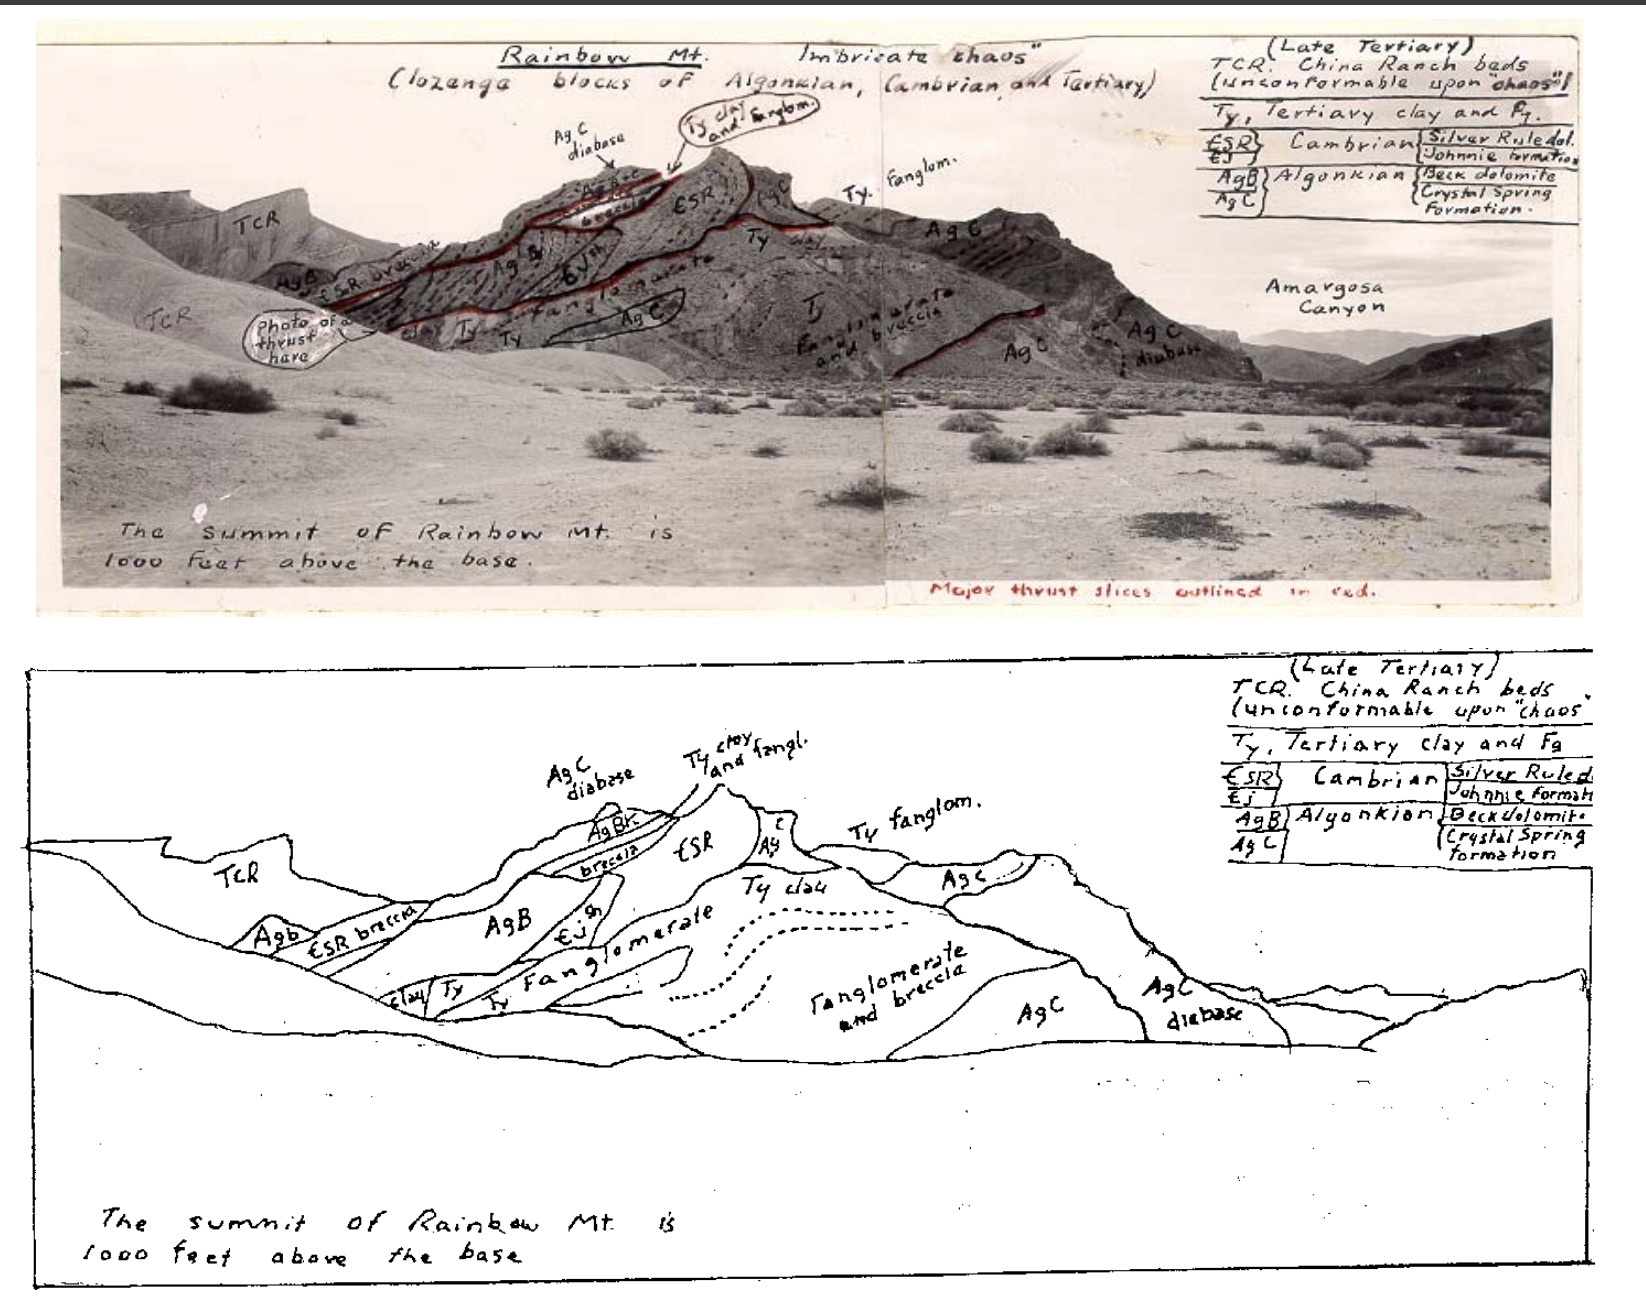 Rainbow Mt. Imbricate chaos"
(lozenge blocks of Algonkian, Cambrian and Tertiary)
(Late Tertiary)
TCR. China Ranch beds
(unconformable upon "chaos")
Ty, Tertiary clay and Fg.
ЄSR} Cambrian {Silver Rule dol.
ЄJ Johnnie formation
AgB} Algonkian {Beck dolomite
AgC {Crystal Spring
Formation.
Ty clay
and fanglom.
AgC
diabase
AgB+C
breccia
ЄSR
AgC
Ty. fanglom.
TCR
AgC
Ty clay
AgB
ЄSR breccia
AgB
ЄJ
Fanglomerate
TCR
Photo of a
thrust
here
clay Ty
Ty
AgC
Ty
Fanglomerate
and breccia
AgC
AgC
diabase
Amargosa
Canyon
The summit of Rainbow Mt. is
1000 feet above the base.
Major thrust slices outlined in red.
(Late Tertiary)
TCR. China Ranch beds
(unconformable upon "chaos"
Ty, Tertiary clay and Fg
ЄSR} Cambrian {Silver Rule d
Єj Johnnie Format
AgB} Algonkian {Beck dolomite
AgC {Crystal Spring
formation
Ty clay
and fangl.
AgC
diabase
AgB+
breccia
ЄSR
AgC
Ty fanglom.
TCR
AgC
Ty clay
Agb
ЄSR breccia
AgB
Єj
Fanglomerate
clay Ty
Ty
Fanglomerate
and breccia
AgC
AgC
diabase
The summit of Rainbow Mt. is
1000 feet above the base